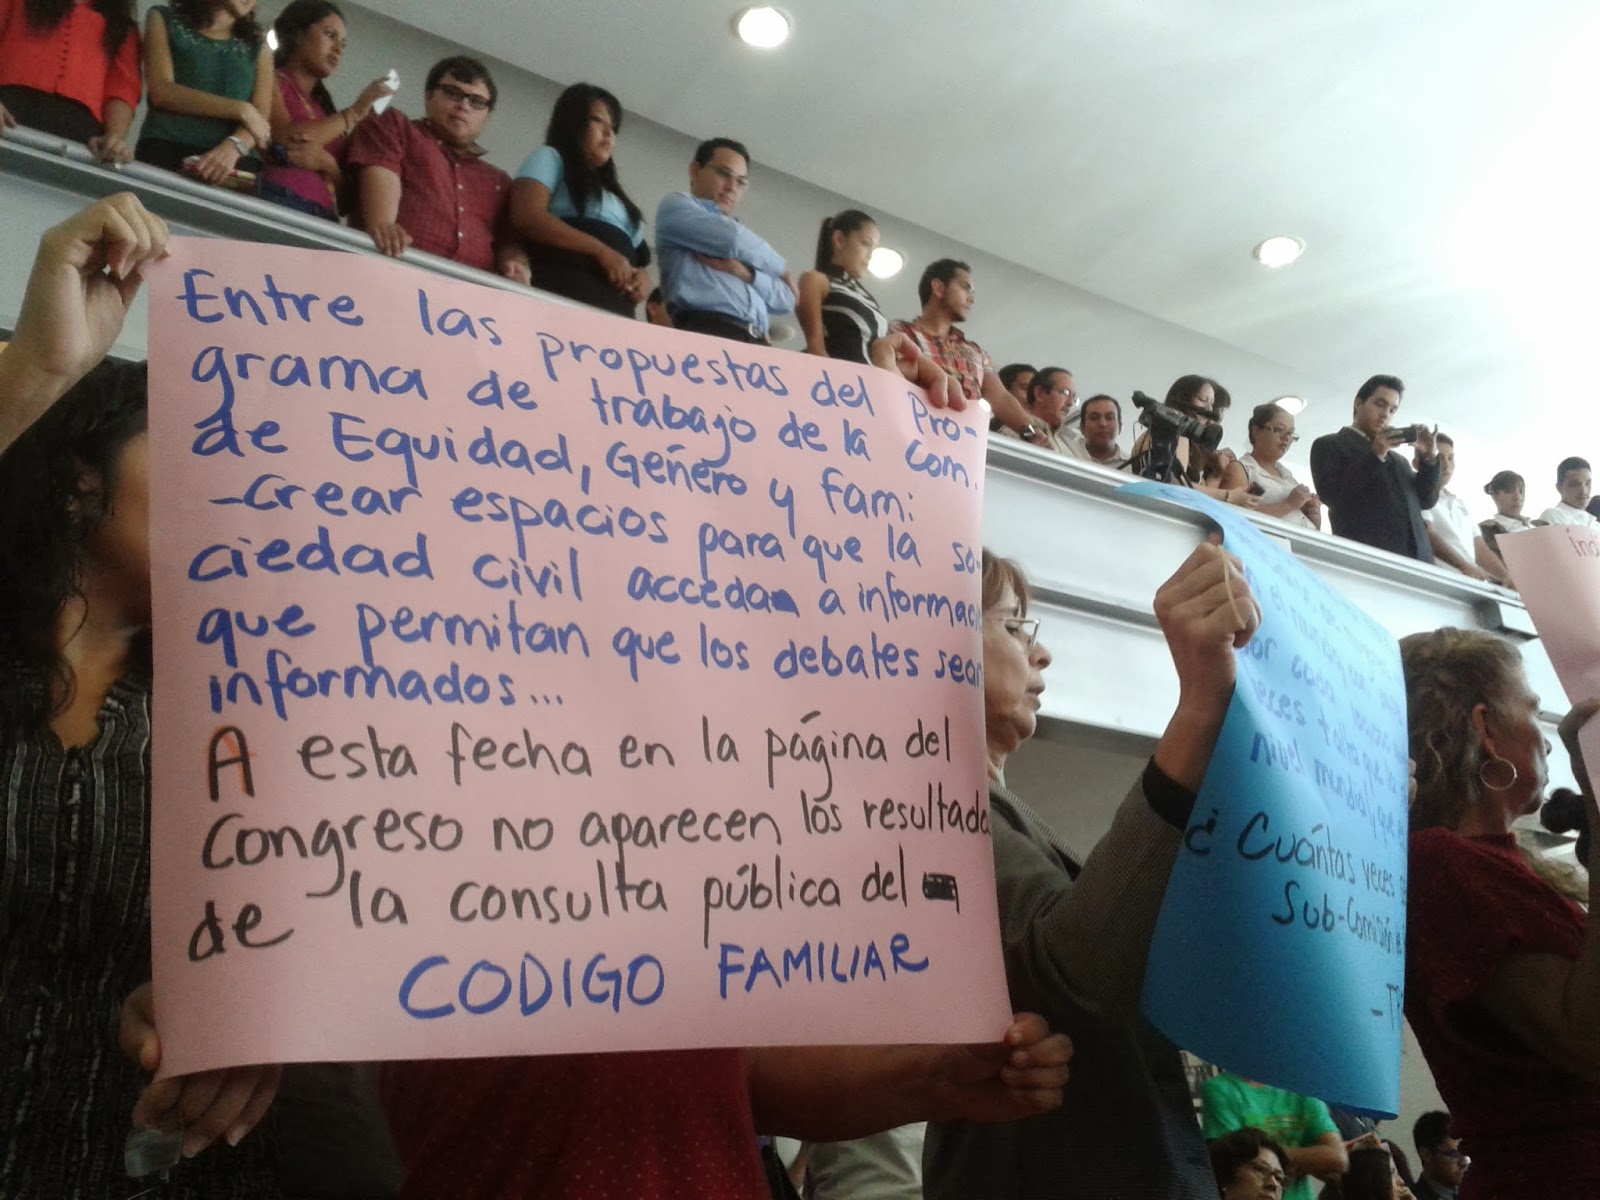 Entre las propuestas del Pro-
grama de trabajo de la Com.
de Equidad, Género y Fam:
-Crear espacios para que la so-
ciedad civil accedan a informaci
que permitan que los debates sean
informados...
A esta fecha en la página del
Congreso no aparecen los resultado
de la consulta pública del
CODIGO FAMILIAR
por cada
veces falta que la
nivel mundial, que
¿Cuántas veces
Sub-Comisión